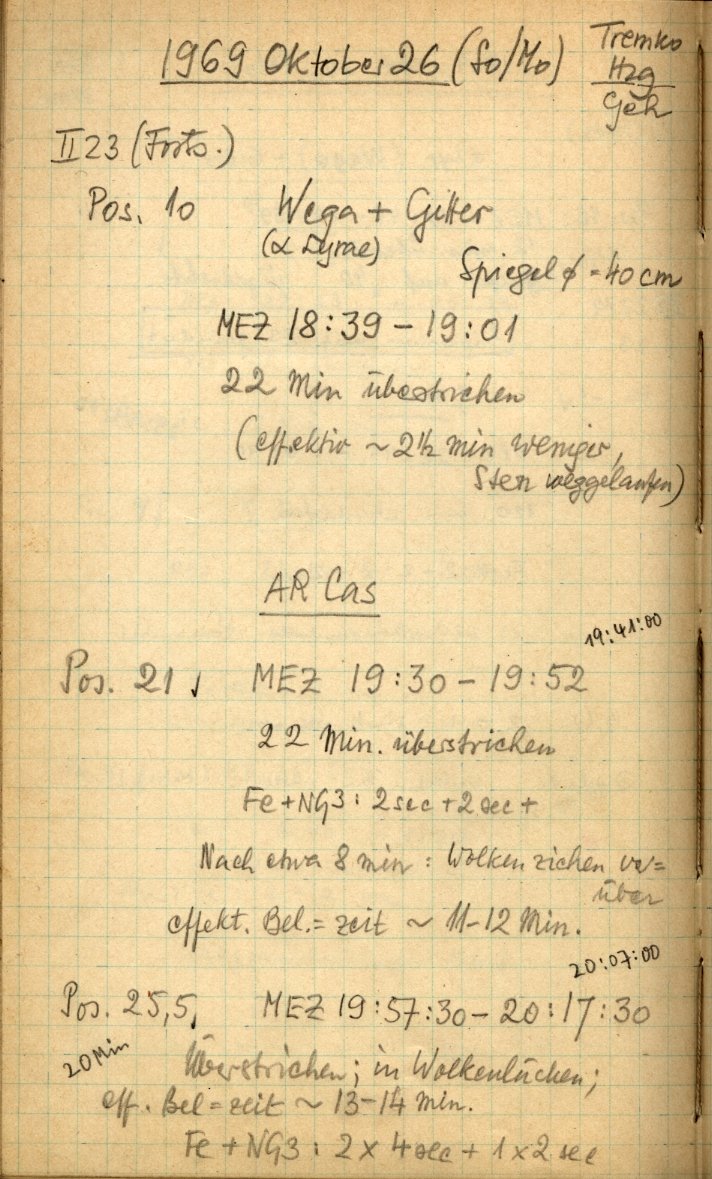 1969 Oktober 26 (So/Mo)
Tremko
Hzg
Geh
II 23 (Forts.)
Pos. 10 Wega + Gitter
(α Lyrae)
Spiegel ϕ = 40 cm
MEZ 18:39 – 19:01
22 Min überstrichen
(effektiv ~ 2½ min weniger,
Stern weggelaufen)
AR Cas
19:41:00
Pos. 21, MEZ 19:30 – 19:52
22 Min. überstrichen
Fe+NG3: 2 sec + 2 sec +
Nach etwa 8 min: Wolken ziehen vor=
über
effekt. Bel.=zeit ~ 11-12 Min.
20:07:00
Pos. 25,5, MEZ 19:57:30 – 20:17:30
20 Min
Überstrichen; in Wolkenlücken;
eff. Bel=zeit ~ 13-14 min.
Fe + NG3: 2 x 4 sec + 1 x 2 sec